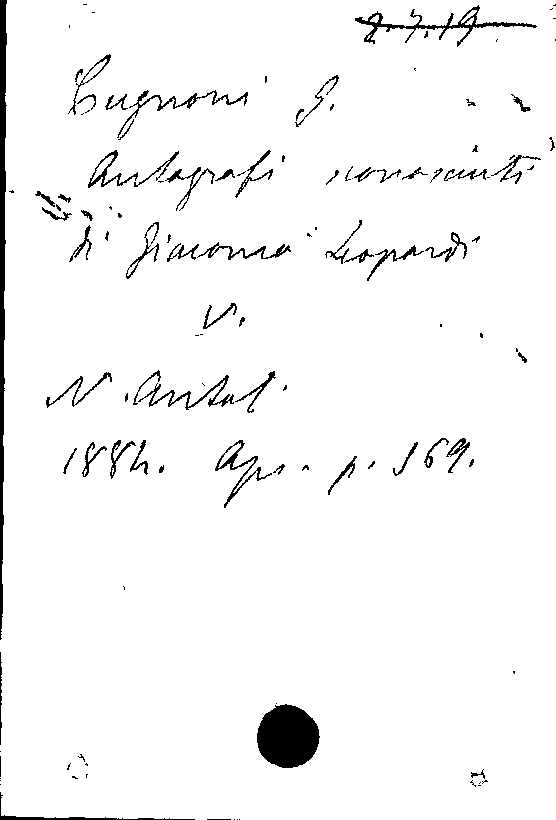 2.7.19
Cugnoni G.
Autografi sconosciuti
di Giacomo Leopardi
V.
N. Antol.
1884. Apr. p. 569.